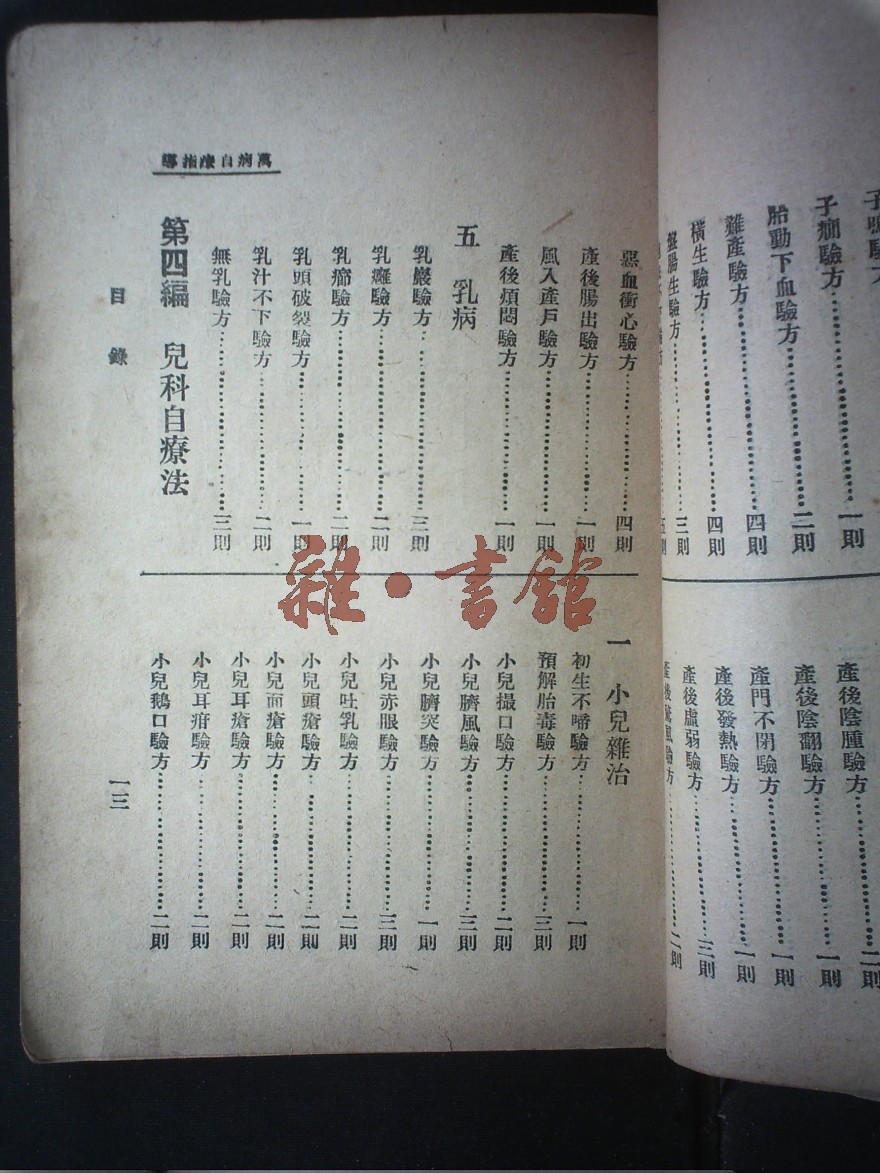 子癇驗方……一則
胎動下血驗方……二則
難產驗方……四則
橫生驗方……四則
盤腸生驗方……三則
產後陰腫驗方……二則
產後陰翻驗方……一則
產門不閉驗方……一則
產後發熱驗方……一則
產後虛弱驗方……三則
萬病自療指導
惡血衝心驗方……四則
產後腸出驗方……一則
風入產戶驗方……一則
產後煩悶驗方……一則
五 乳病
乳巖驗方……三則
乳癰驗方……二則
乳癤驗方……二則
乳頭破裂驗方……一則
乳汁不下驗方……二則
無乳驗方……三則
第四編 兒科自療法
一 小兒雜治
初生不啼驗方……一則
預解胎毒驗方……三則
小兒撮口驗方……二則
小兒臍風驗方……三則
小兒臍突驗方……一則
小兒赤眼驗方……三則
小兒吐乳驗方……二則
小兒頭瘡驗方……二則
小兒面瘡驗方……二則
小兒耳瘡驗方……二則
小兒耳疳驗方……二則
小兒鵝口驗方……二則
目錄
一三
雜·書館